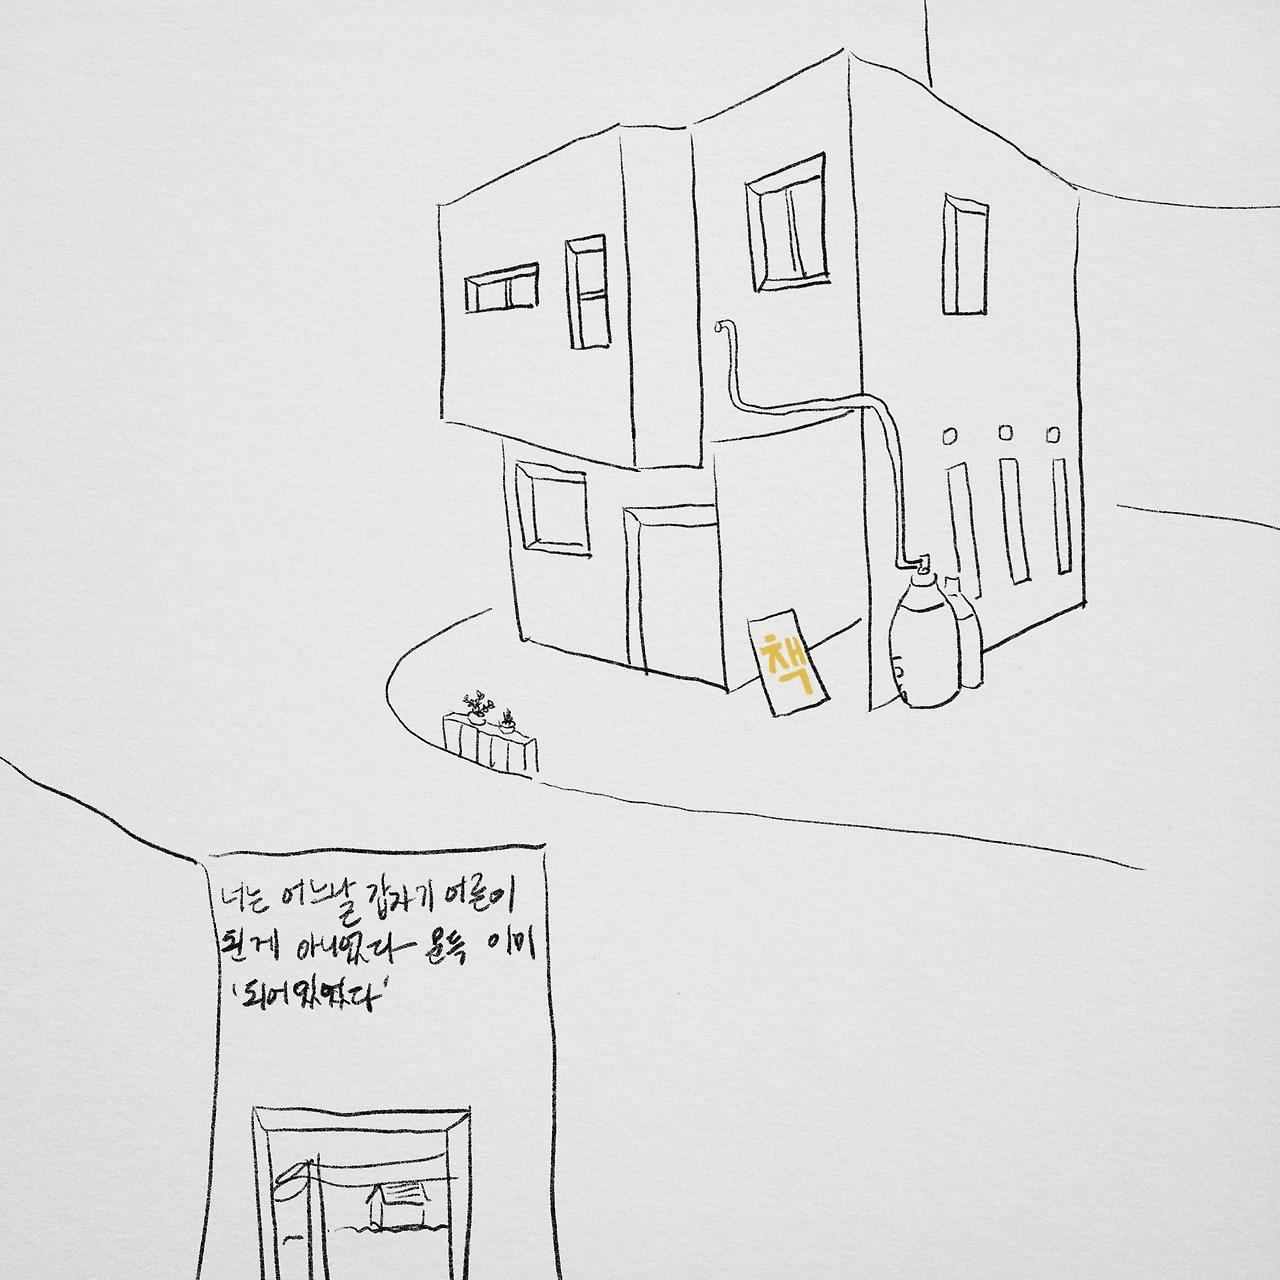 책
너는 어느날 갑자기 어른이
된게 아니었다 문득 이미
'되어있었다'